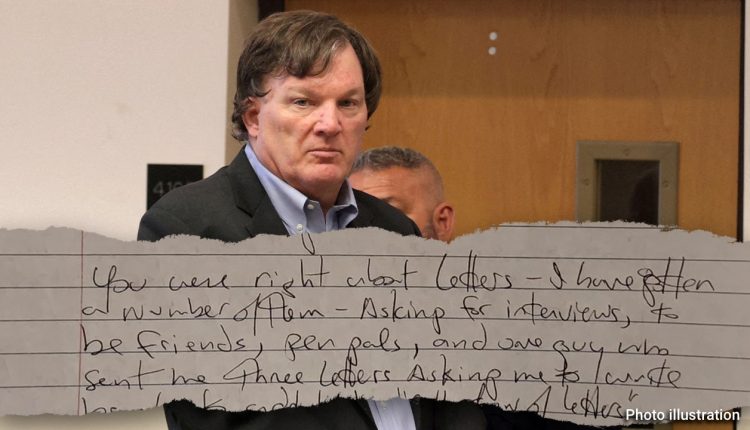 You were right about letters - I have gotten
a number of them - Asking for interviews, to
be friends, pen pals, and one guy who
sent me three letters Asking me to write
of letters"
Photo illustration